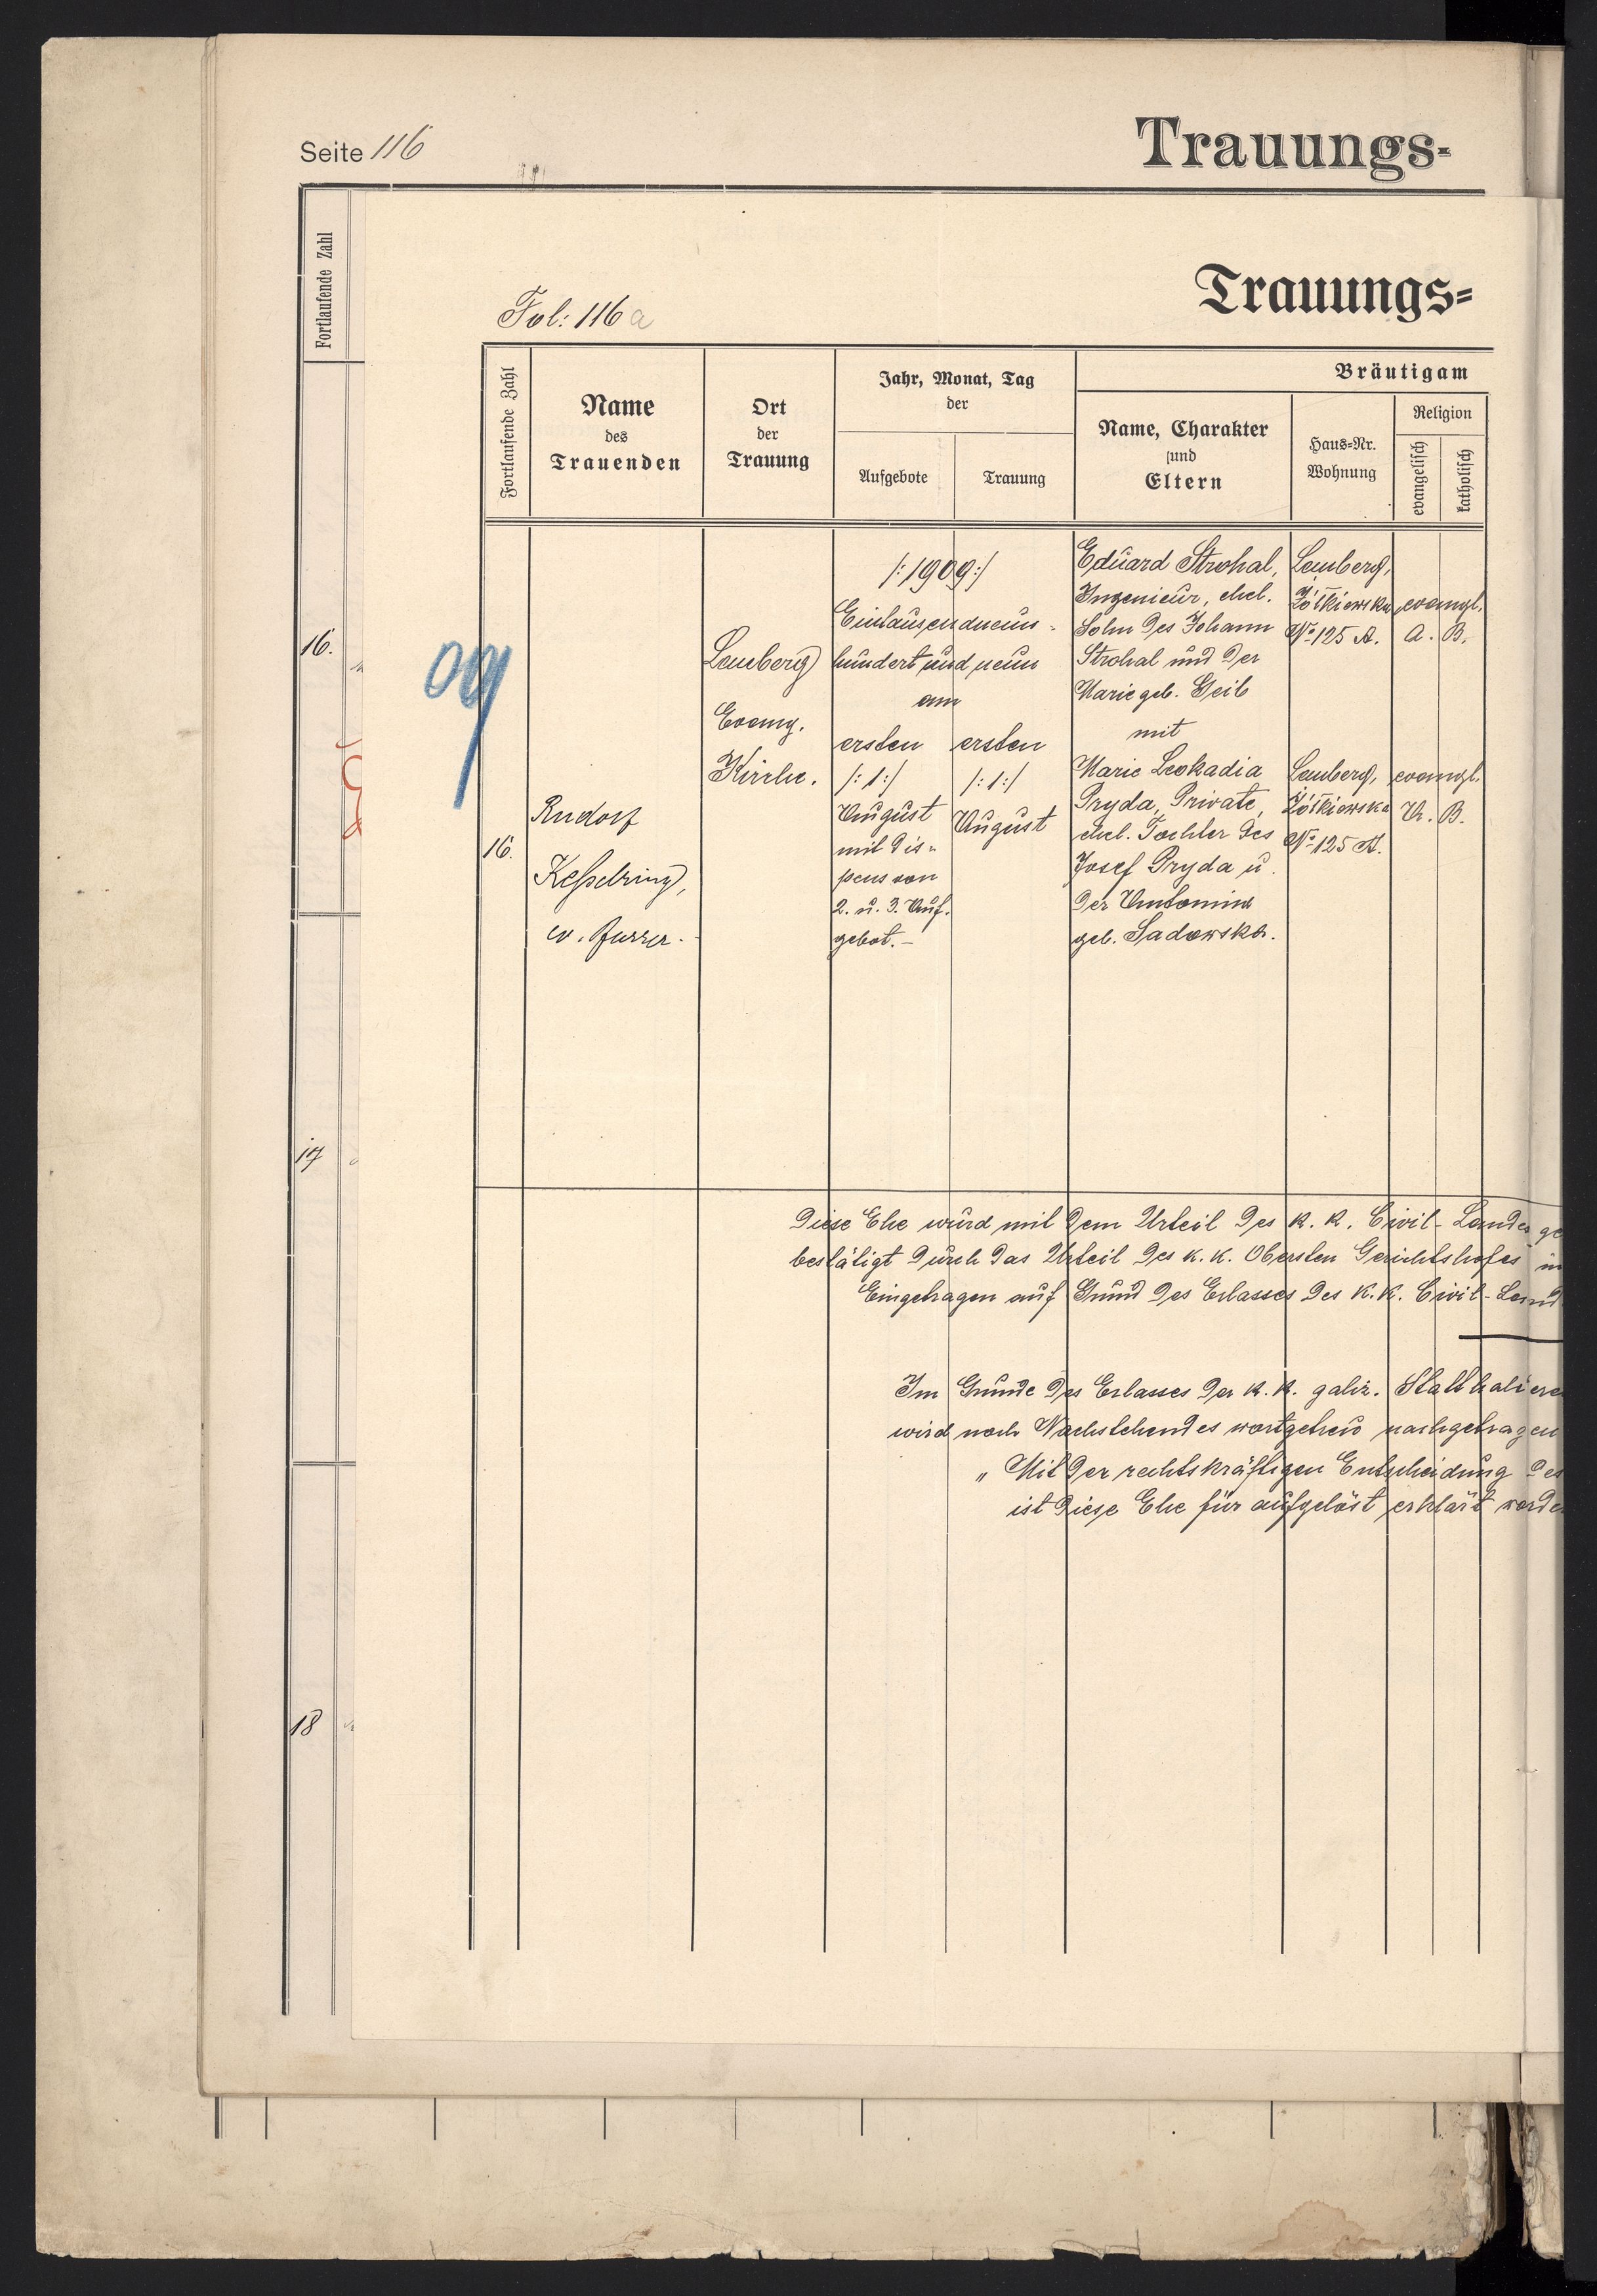 Seite 116
Trauungs-
Fortlaufende Zahl
16.
17
18
Fol: 116 a
Trauungs-
09
Fortlaufende Zahl
Name
des
Trauenden
Ort
der
Trauung
Jahr, Monat, Tag
der
Aufgebote
Trauung
Bräutigam
Name, Charakter
und
Eltern
Haus-Nr.
Wohnung
Religion
evangelisch
katholisch
16.
Rudolf
Kesselring,
ev. Pfarrer.
Lemberg
Evang.
Kirche.
/:1909:/
Eintausendneun-
hundert und neun
am
ersten
/:1:/
August
mit Dis-
pens von
2. u. 3. Auf-
gebot.-
ersten
/:1:/
August
Eduard Strohal,
Ingenieur, ehel.
Sohn des Johann
Strohal und der
Marie geb. Geib
mit
Marie Leokadia
Pryda, Private,
ehel. Tochter des
Josef Pryda u.
der Antonina
geb. Sadowska.
Lemberg,
Żółkiewska
No 125 A.
evangl.
A. B.
Lemberg,
Żółkiewska
No 125 A.
evangl.
A. B.
Diese Ehe wurd mit dem Urteil des k. k. Civil-Landesge
bestätigt durch das Urteil des k. k. Obersten Gerichtshofes in
Eingetragen auf Grund des Erlasses des k. k. Civil-Land
Im Grunde des Erlasses der k. k. galiz. Statthaltere
wird noch Nachstehendes wortgetreu nachgetragen
„Mit der rechtskräftigen Entscheidung des
ist diese Ehe für aufgelöst erklärt worde